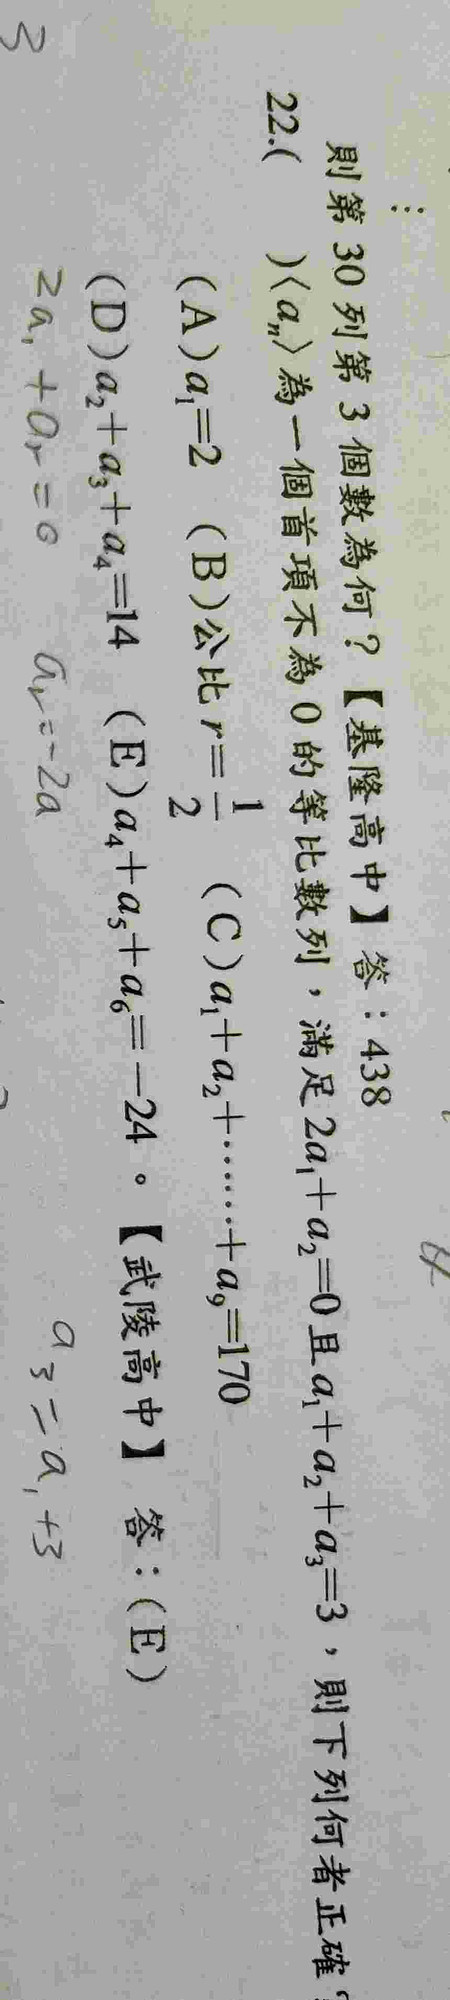 ⋮
則第30列第3個數為何？【基隆高中】答：438
22.(　　)⟨aₙ⟩為一個首項不為0的等比數列，滿足2a₁+a₂=0且a₁+a₂+a₃=3，則下列何者正確？
(A)a₁=2　(B)公比r=1/2　(C)a₁+a₂+……+a₉=170
(D)a₂+a₃+a₄=14　(E)a₄+a₅+a₆=−24。【武陵高中】 答：(E)
2a₁+a₂=0　a₂=-2a　a₃=a₁+3
3